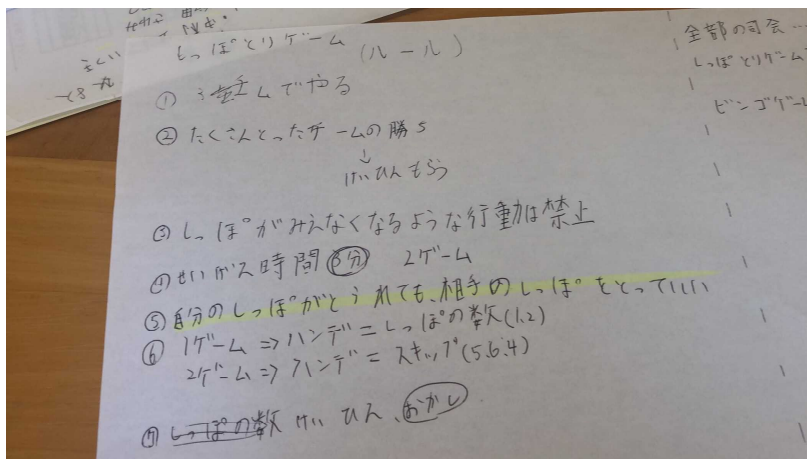 しっぽとりゲーム (ルール)
① チームでやる
② たくさんとったチームの勝ち
↓
けいひんもらう
③ しっぽがみえなくなるような行動は禁止
④ せいげん時間 2ゲーム
⑤ 自分のしっぽがとられても、相手のしっぽをとっていい
⑥ 1ゲーム ⇒ ハンデ = しっぽの数(1,2)
2ゲーム ⇒ ハンデ = スキップ(5.6.4)
⑦ しっぽの数 けいひん、おかし
全部の司会…
しっぽとりゲーム
ビンゴゲーム